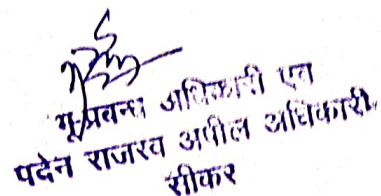 भू-प्रबन्ध अधिकारी एवं
पदेन राजस्व अपील अधिकारी,
सीकर